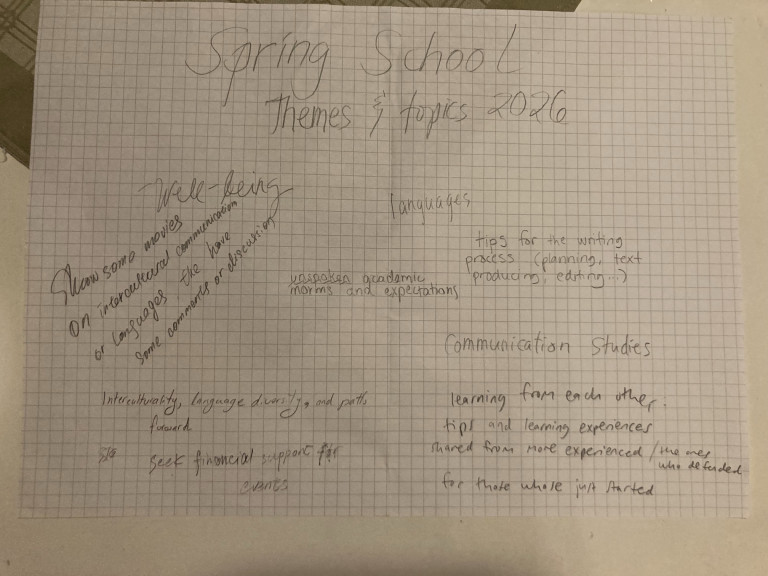 Spring School
Themes & topics 2026
Well-being
Show some movies
on intercultural communication
or languages, the have
some comments or discussion
languages
tips for the writing
process (planning, text
producing, editing...)
unspoken academic
norms and expectations
Communication Studies
Interculturality, language diversity, and paths
forward
seek financial support for
events
learning from each other:
tips and learning experiences
shared from more experienced / the ones
who defended
for those whole just started